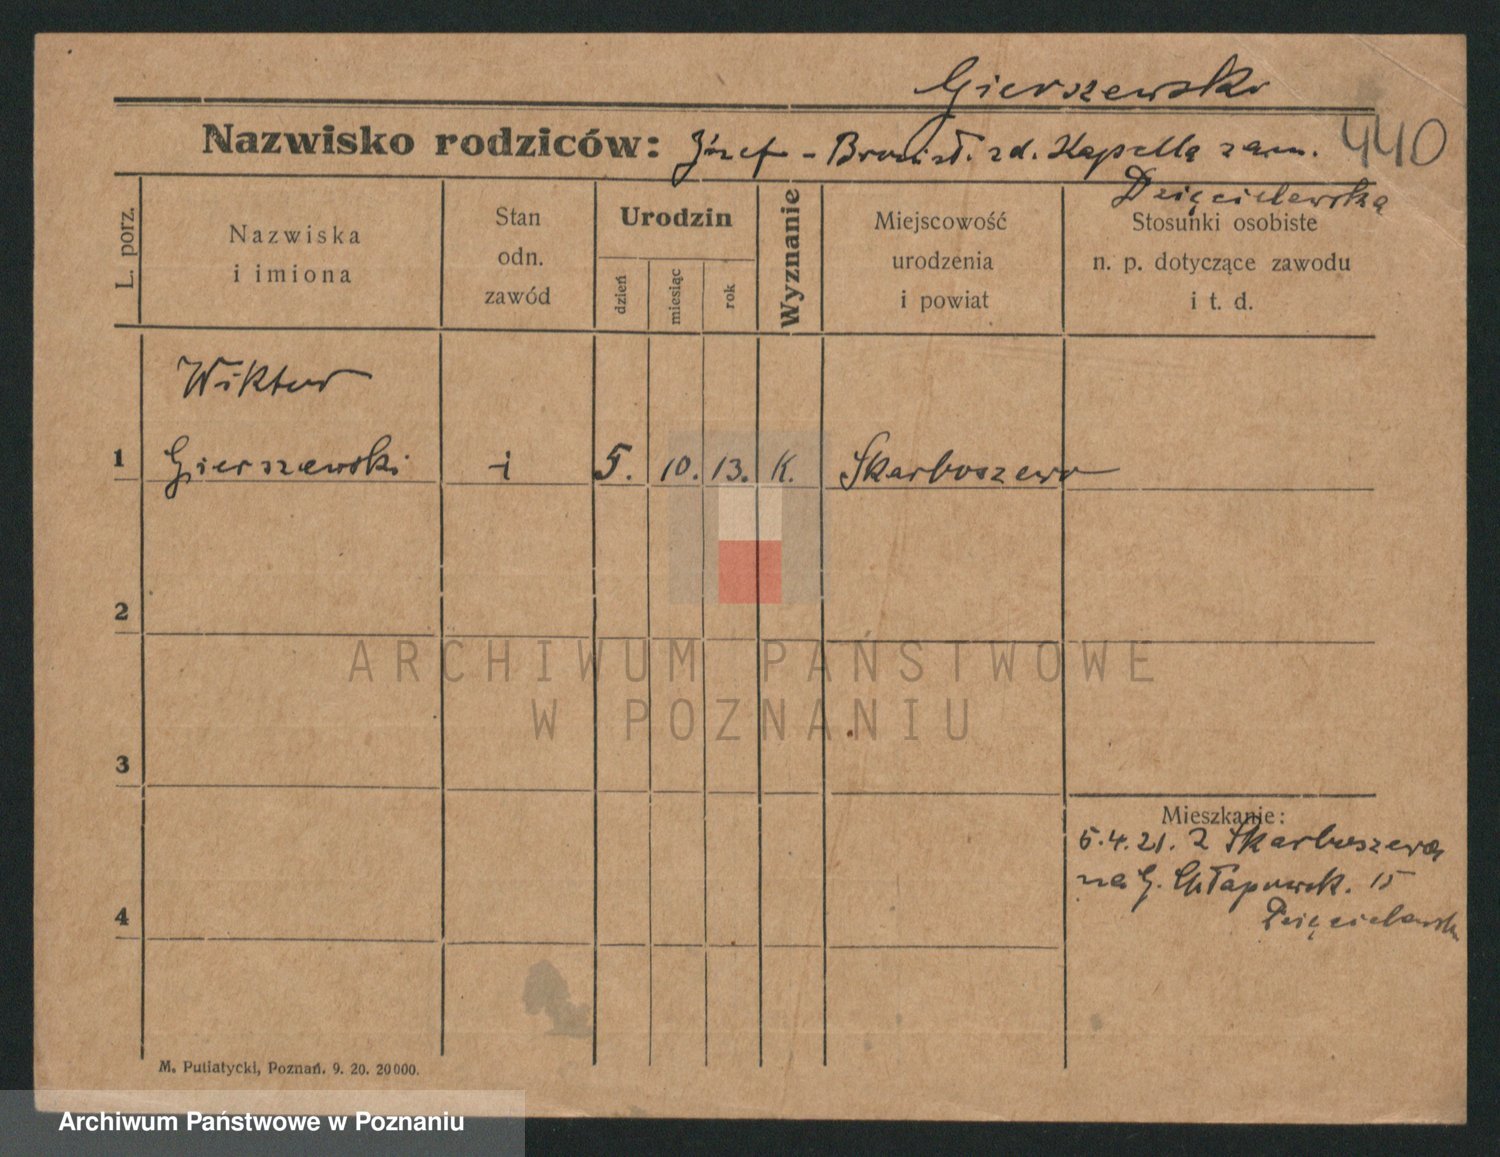 Gierszewski
440
Nazwisko rodziców: Józef - Bronisł. zd. Kapella zam.
Dzięcielewska
L. porz.
Nazwiska
i imiona
Stan
odn.
zawód
Urodzin
dzień
miesiąc
rok
Wyznanie
Miejscowość
urodzenia
i powiat
Stosunki osobiste
n. p. dotyczące zawodu
i t. d.
Wiktor
1 Gierszewski i 5. 10. 13. K. Skarboszewo
2
ARCHIWUM PAŃSTWOWE
W POZNANIU
3
Mieszkanie:
5.4.21. z Skarboszewa
na G. 15
4
Dzięcielewska
M. Putiatycki, Poznań. 9. 20. 20000.
Archiwum Państwowe w Poznaniu